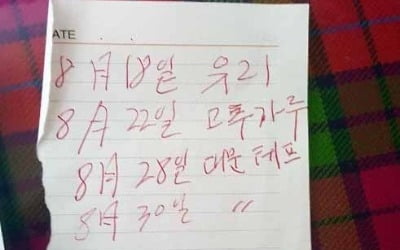 DATE . .
8月 18일 유리
8月 22일 고추가루
8月 28일 대문 테프
8月 30일 〃